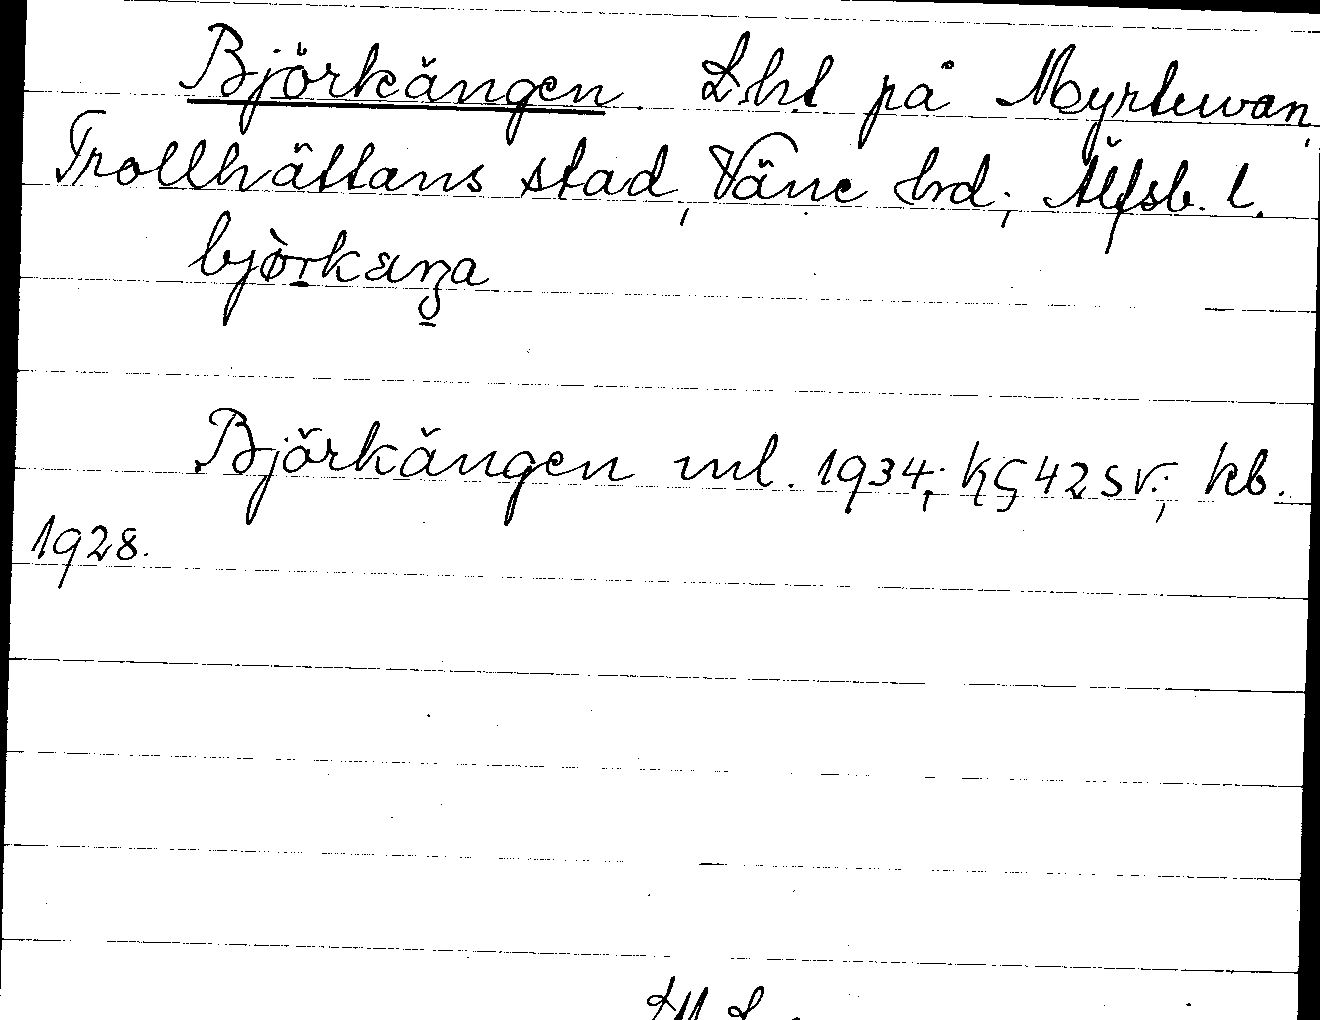 Björkängen. Lht på Myrtuvan,
Trollhättans stad, Väne hrd; Älfsb. l.
bjòrkæŋa
Björkängen ml. 1934; KG 42 SV.; kb.
1928.